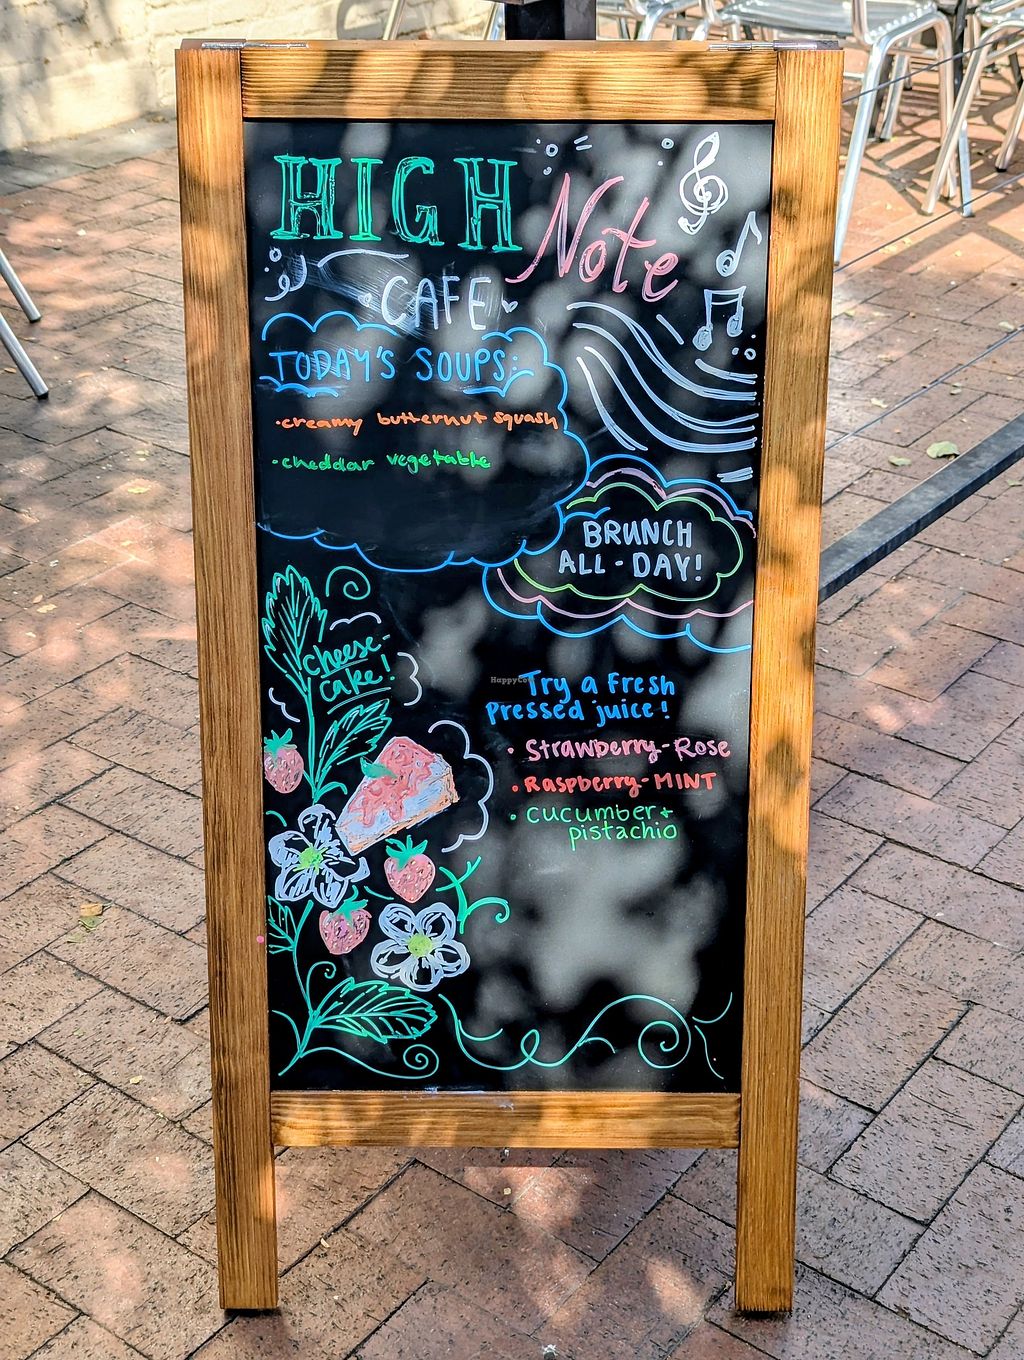 HIGH Note
CAFE
TODAY'S SOUPS:
·creamy butternut squash
·cheddar vegetable
BRUNCH
ALL-DAY!
cheese-
cake!
Try a Fresh
Pressed juice!
· Strawberry-Rose
· Raspberry-MINT
· cucumber +
pistachio